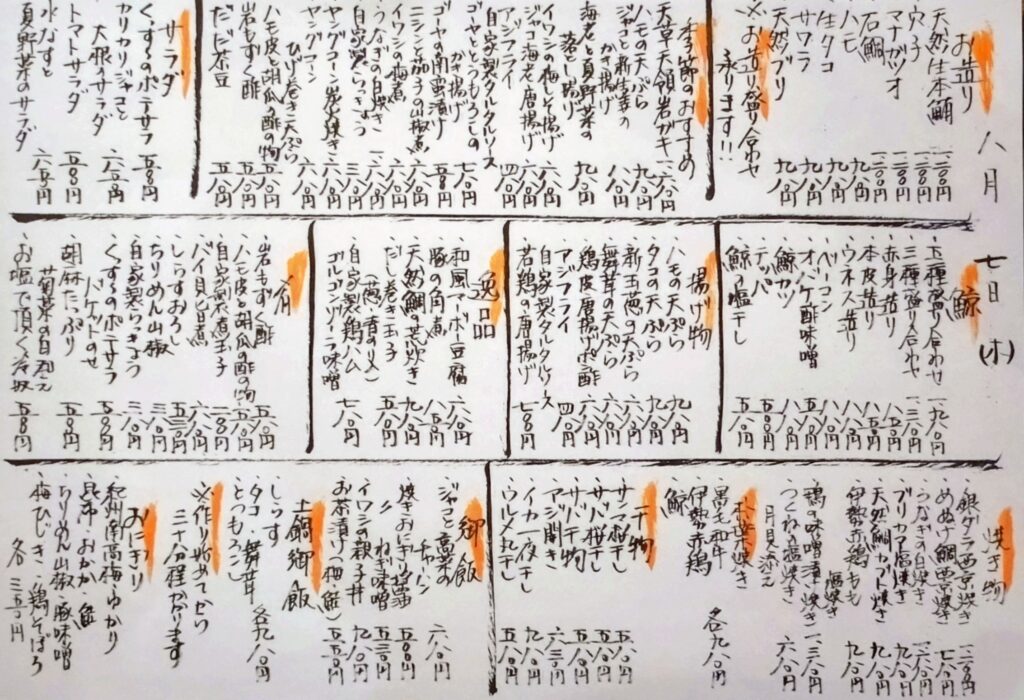 八月 七日(木)
お造り
・天然生本鮪 一二〇〇円
・穴子 一二〇〇円
・マナガツオ 一二〇〇円
・石鯛 一二〇〇円
・ハモ 九八〇円
・生タコ 九八〇円
・サワラ 九八〇円
・天然ブリ 九八〇円
※お造り盛り合わせ
承ります!!
季節のおすすめ
・天草天領岩ガキ 一六八〇円
・ハモの天ぷら 九八〇円
・ジャコと新生姜の
かき揚げ 八八〇円
・海老と夏野菜の
落とし揚げ 九八〇円
・イワシの梅しそ揚げ 六八〇円
・ジャコ海老唐揚げ 六八〇円
・自家製タルタルソース
アジフライ 四八〇円
・ゴーヤととうもろこしの
かき揚げ 七八〇円
・ゴーヤの南蛮漬け 五八〇円
・ニシンと茄子の山椒煮
・イワシの梅煮
・うなぎの白焼き
・自家製らっきょう
・ヤングコーン炭火焼き
・ヤングコーン
ひげ巻き天ぷら
・ハモ皮と胡瓜酢の物 五八〇円
・岩もずく酢 五八〇円
・だだ茶豆 五八〇円
サラダ
・くずしのポテサラ 五八〇円
・カリカリジャコと
大根のサラダ 六八〇円
・トマトサラダ 五八〇円
・水なすと
夏野菜のサラダ 六八〇円
鯨
・五種盛り合わせ 一九八〇円
・三種盛り合わせ 一三八〇円
・赤身造り
・本皮造り
・ウネス造り
・ベーコン
・オバケ酢味噌
・鯨カツ
・テッパ
・鯨の塩干し 五八〇円
揚げ物
・ハモの天ぷら 九八〇円
・タコの天ぷら 九八〇円
・新玉葱の天ぷら 六八〇円
・舞茸の天ぷら 六八〇円
・鶏皮唐揚げポン酢
・自家製タルタルソース
アジフライ 四八〇円
・若鶏の唐揚げ 七八〇円
逸品
・和風マーボー豆腐 六八〇円
・豚の角煮 八八〇円
・天然鯛の荒炊き 九八〇円
・だし巻き玉子 五八〇円
・〃
(葱・青のり入)
・自家製鶏ハム
ゴルゴンゾーラ味噌 七八〇円
肴
・岩もずく酢 五八〇円
・ハモ皮と胡瓜の酢の物 五八〇円
・自家製煮玉子 二八〇円
・バイ貝旨煮 六八〇円
・しらすおろし
・ちりめん山椒
・自家製らっきょう
・くずしのポテサラ
バケットのせ
・胡麻たっぷり
菊菜の白和え 五八〇円
・お塩で頂く冷奴 五八〇円
焼き物
・銀ダラ西京焼き 一二八〇円
・めぬけ鯛西京焼き
・うなぎの白焼き
・ブリカマ塩焼き 九八〇円
・天然鯛カブト焼き 九八〇円
・伊勢赤鶏もも
塩焼き 九八〇円
・鶏の味噌漬け焼き 一三八〇円
・つくねの塩焼き
月見添え 六八〇円
朴葉焼き
・黒毛和牛
・伊勢赤鶏
・鯨
各九八〇円
干物
・サンマ桜干し 五八〇円
・サバ桜干し 五八〇円
・サバ干物 五八〇円
・アジ開き 六三〇円
・イカ一夜干し 九八〇円
・ウルメ丸干し 五八〇円
御飯
・ジャコと高菜の
チャーハン 六八〇円
・焼きおにぎり 醤油
ねぎ味噌
・イワシの親子丼
・お茶漬け(梅・鮭) 五八〇円
土鍋御飯
・しらす
・タコ・舞茸
・とうもろこし
各九八〇円
※作り始めてから
三十分程かかります
おにぎり
・紀州南高梅・ゆかり
・昆布・おかか・鮭
・ちりめん山椒・豚味噌
・梅ひじき・鶏そぼろ
各三五〇円